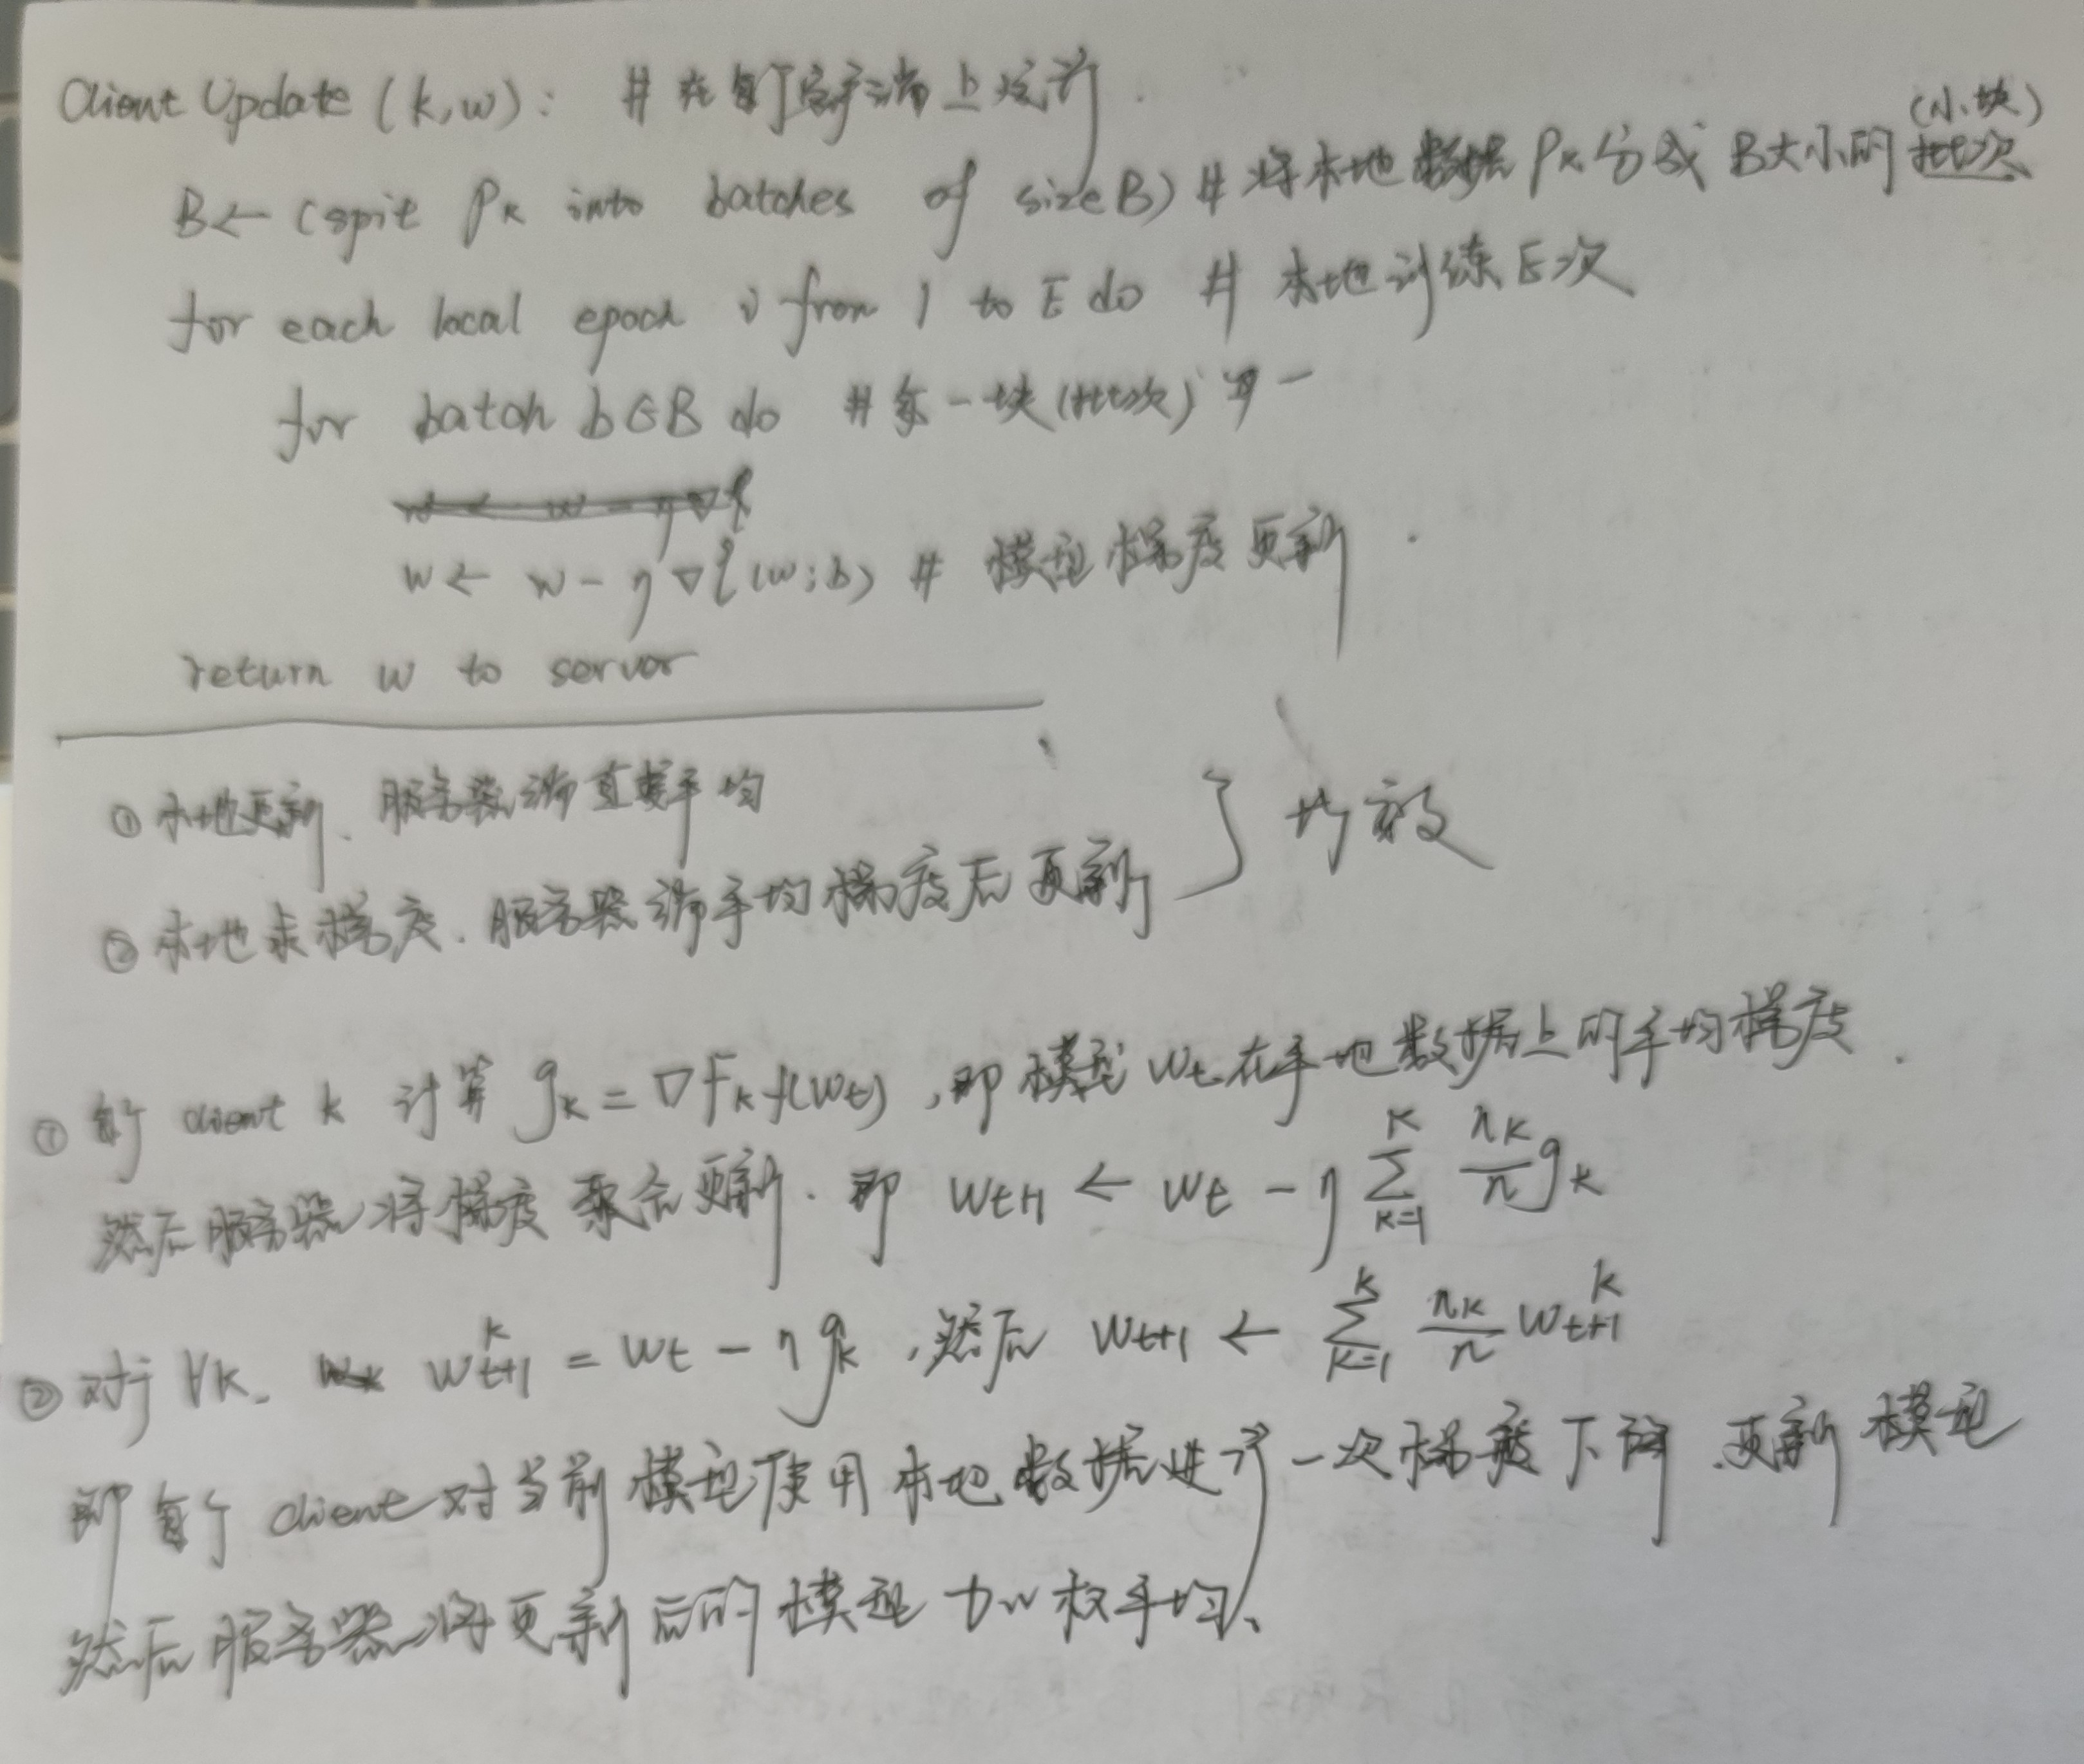 Client Update (k,w): # 在每个客户端上运行
(小块)
B← (spit Pk into batches of size B) # 将本地数据Pk分成B大小的批次
for each local epoch i from 1 to E do # 本地训练E次
for batch b∈B do # 每一块(批次)
w ← w - η∇ℓ
w ← w - η∇ℓ(w;b) # 模型梯度更新.
return w to server
① 本地更新. 服务器端直接平均
② 本地求梯度. 服务器端平均梯度后更新
} 均衡
① 每个 client k 计算 gk = ∇Fk f(wt) ,即模型 wt 在本地数据上的平均梯度.
然后服务器将梯度聚合更新. 即 wt+1 ← wt - η Σ_{k=1}^{K} nk/n gk
② 对于 ∀k, w_{t+1}^k = wt - η gk ,然后 wt+1 ← Σ_{k=1}^{K} nk/n w_{t+1}^k
即每个 client 对当前模型使用本地数据进行一次梯度下降.更新模型
然后服务器将更新后的模型加权平均、